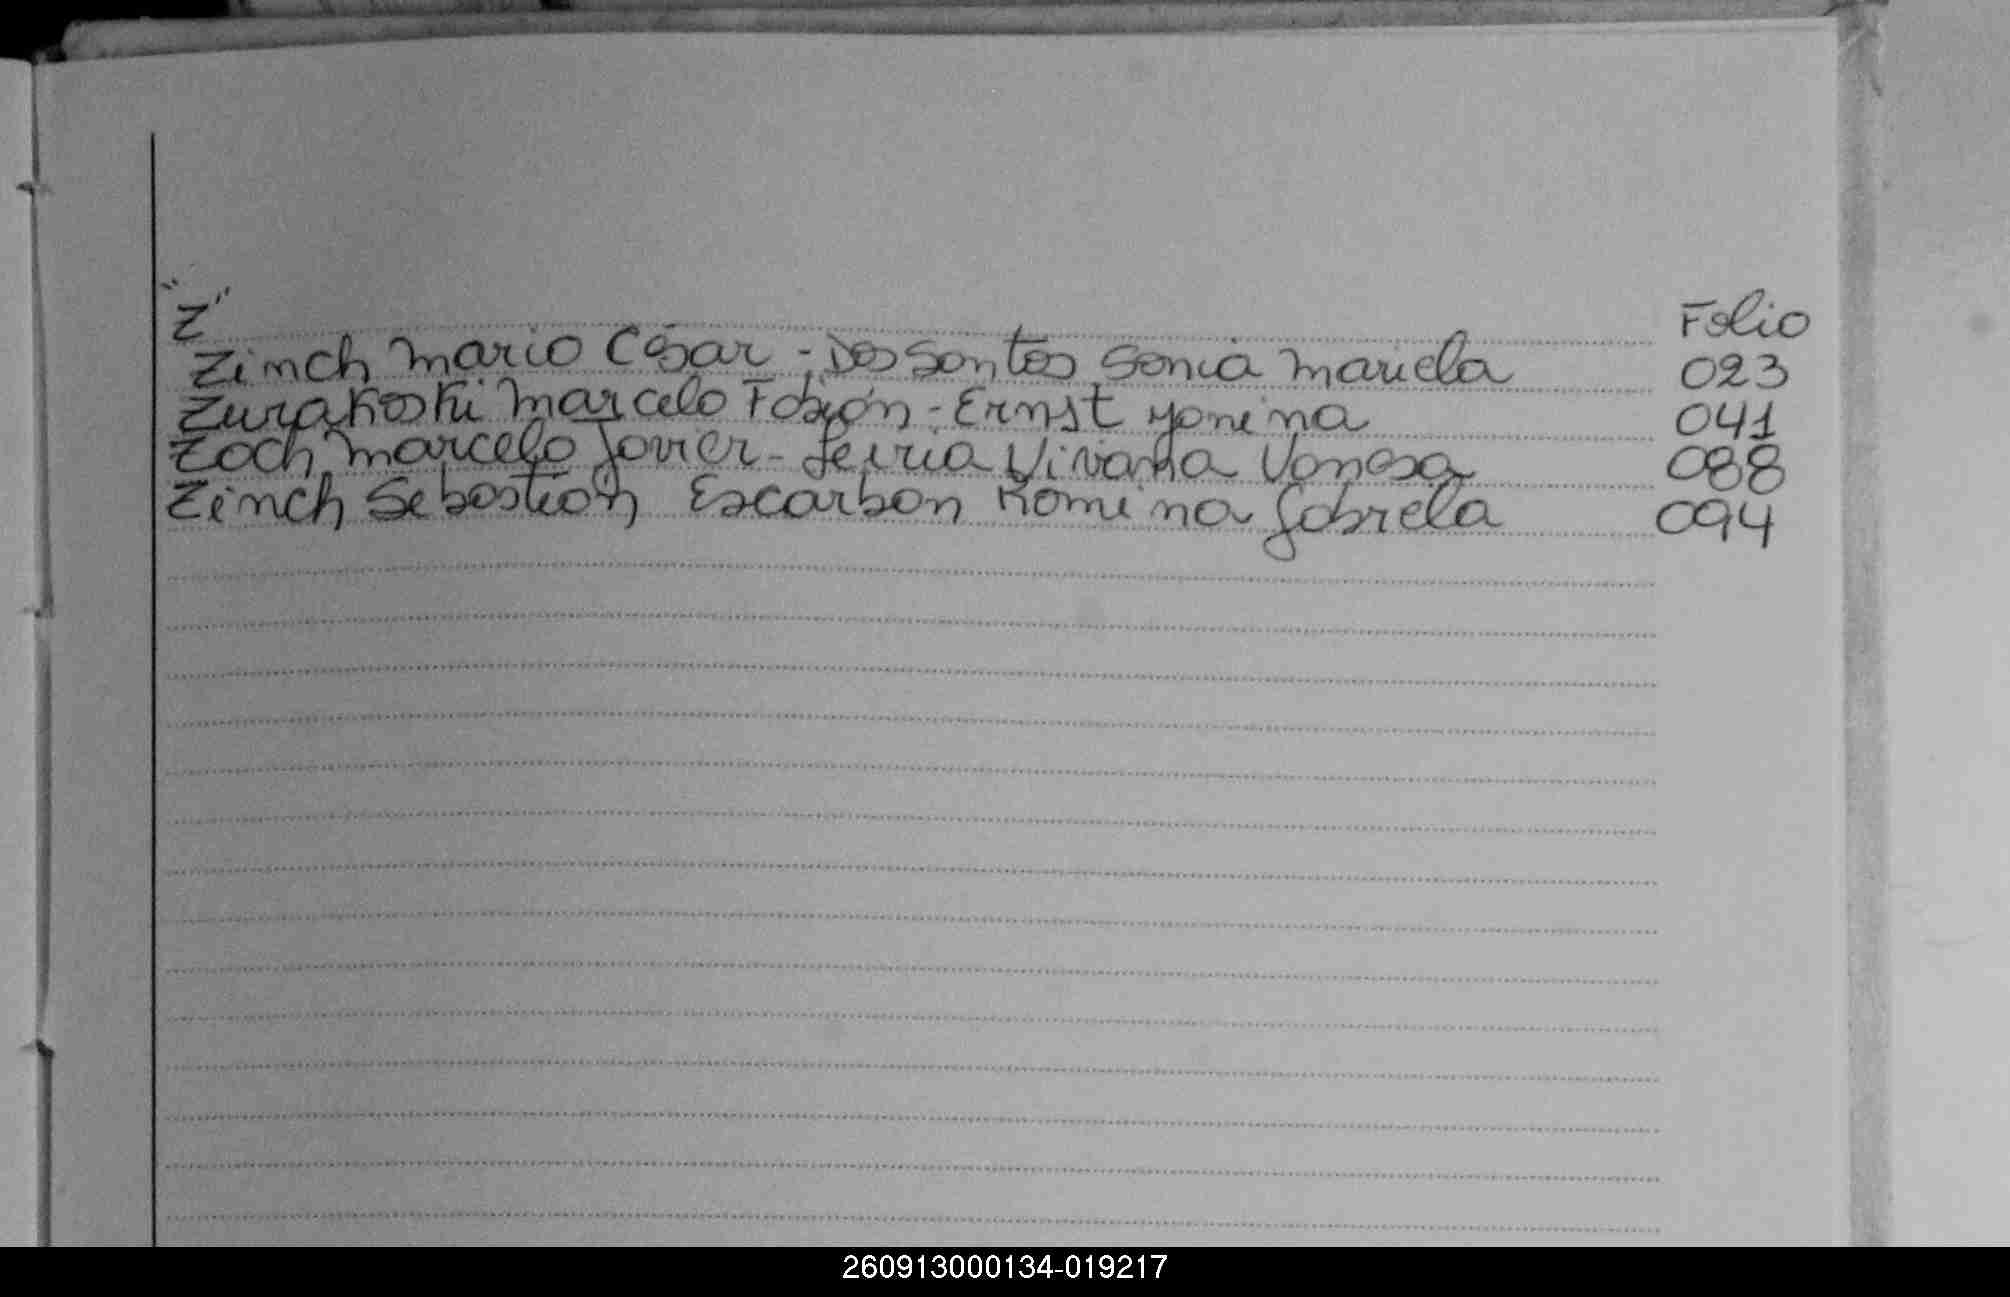 "Z" Folio
Zinch Mario César - Dos Santos Sonia Mariela 023
Zurakoski Marcelo Fabián - Ernst Yanina 041
Zoch Marcelo Javier - Leiria Viviana Vanesa 088
Zinch Sebastián Escarbon Romina Gabriela 094
260913000134-019217